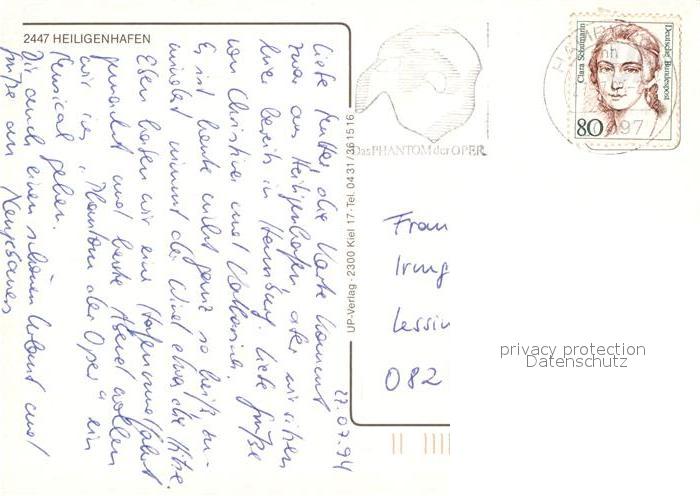 2447 HEILIGENHAFEN
27.07.94
Liebe Mutter, die Karte kommt
zwar aus Heiligenhafen aber wir sitzen
hier bereits in Hamburg. Liebe Grüße
von Christina und Katharina.
Es ist heute nicht ganz so heiß zu-
mindest nimmt der Wind etwas die Hitze.
Eben haben wir eine Hafenrundfahrt
gemacht und heute Abend wollen
wir ins „Phantom der Oper" ein
Musical gehen.
Dir auch einen schönen Urlaub und
Grüße an
UP-Verlag · 2300 Kiel 17 · Tel. 0431/36 15 16
Das PHANTOM der OPER
Clara Schumann
Deutsche Bundespost
80
Frau
Irmg
Lessin
082
privacy protection
Datenschutz